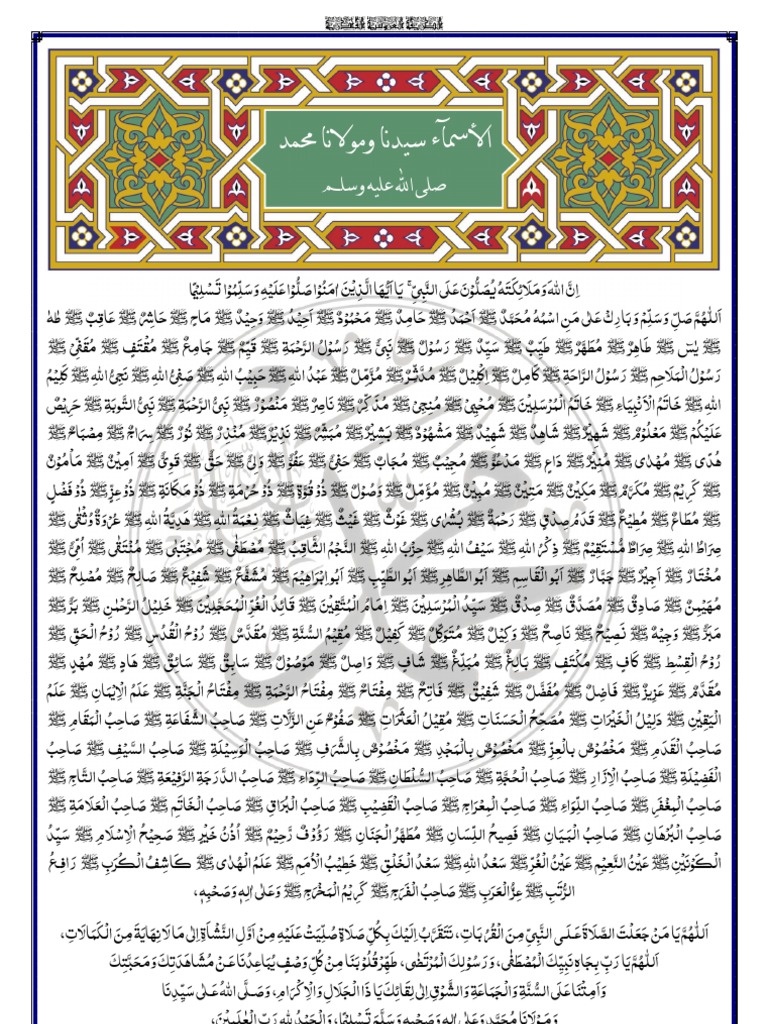 الأسمآء سيدنا ومولانا محمد
صلى الله عليه وسلم
اِنَّ اللهَ وَمَلَائِكَتَهُ يُصَلُّوْنَ عَلَى النَّبِيِّ ۚ يَا اَيُّهَا الَّذِيْنَ اٰمَنُوْا صَلُّوْا عَلَيْهِ وَسَلِّمُوْا تَسْلِيْمًا
اَللّٰهُمَّ صَلِّ وَسَلِّمْ وَبَارِكْ عَلٰى مَنِ اسْمُهُ مُحَمَّدٌ ﷺ اَحْمَدُ ﷺ حَامِدٌ ﷺ مَحْمُوْدٌ ﷺ اَحِيْدٌ ﷺ وَحِيْدٌ ﷺ مَاحٍ ﷺ حَاشِرٌ ﷺ عَاقِبٌ ﷺ طٰهٰ
ﷺ يٰسٓ ﷺ طَاهِرٌ ﷺ مُطَهَّرٌ ﷺ طَيِّبٌ ﷺ سَيِّدٌ ﷺ رَسُوْلٌ ﷺ نَبِيٌّ ﷺ رَسُوْلُ الرَّحْمَةِ ﷺ قَيِّمٌ ﷺ جَامِعٌ ﷺ مُقْتَفٍ ﷺ مُقَفّٰى ﷺ
رَسُوْلُ الْمَلَاحِمِ ﷺ رَسُوْلُ الرَّاحَةِ ﷺ كَامِلٌ ﷺ اِكْلِيْلٌ ﷺ مُدَّثِّرٌ ﷺ مُزَّمِّلٌ ﷺ عَبْدُ اللهِ ﷺ حَبِيْبُ اللهِ ﷺ صَفِيُّ اللهِ ﷺ نَجِيُّ اللهِ ﷺ كَلِيْمُ
اللهِ ﷺ خَاتَمُ الْاَنْبِيَاءِ ﷺ خَاتَمُ الْمُرْسَلِيْنَ ﷺ مُحْيِيْ ﷺ مُنْجِيْ ﷺ مُذَكِّرٌ ﷺ نَاصِرٌ ﷺ مَنْصُوْرٌ ﷺ نَبِيُّ الرَّحْمَةِ ﷺ نَبِيُّ التَّوْبَةِ ﷺ حَرِيْصٌ
عَلَيْكُمْ ﷺ مَعْلُوْمٌ ﷺ شَهِيْرٌ ﷺ شَاهِدٌ ﷺ شَهِيْدٌ ﷺ مَشْهُوْدٌ ﷺ بَشِيْرٌ ﷺ مُبَشِّرٌ ﷺ نَذِيْرٌ ﷺ مُنْذِرٌ ﷺ نُوْرٌ ﷺ سِرَاجٌ ﷺ مِصْبَاحٌ ﷺ
هُدًى ﷺ مُهْدٰى ﷺ مُنِيْرٌ ﷺ دَاعٍ ﷺ مَدْعُوٌّ ﷺ مُجِيْبٌ ﷺ مُجَابٌ ﷺ حَفِيٌّ ﷺ عَفُوٌّ ﷺ وَلِيٌّ ﷺ حَقٌّ ﷺ قَوِيٌّ ﷺ اَمِيْنٌ ﷺ مَأْمُوْنٌ
ﷺ كَرِيْمٌ ﷺ مُكَرَّمٌ ﷺ مَكِيْنٌ ﷺ مَتِيْنٌ ﷺ مُبِيْنٌ ﷺ مُؤَمِّلٌ ﷺ وَصُوْلٌ ﷺ ذُوْ قُوَّةٍ ﷺ ذُوْ حُرْمَةٍ ﷺ ذُوْ مَكَانَةٍ ﷺ ذُوْ عِزٍّ ﷺ ذُوْ فَضْلٍ
ﷺ مُطَاعٌ ﷺ مُطِيْعٌ ﷺ قَدَمُ صِدْقٍ ﷺ رَحْمَةٌ ﷺ بُشْرٰى ﷺ غَوْثٌ ﷺ غَيْثٌ ﷺ غِيَاثٌ ﷺ نِعْمَةُ اللهِ ﷺ هَدِيَّةُ اللهِ ﷺ عُرْوَةٌ وُثْقٰى ﷺ
صِرَاطُ اللهِ ﷺ صِرَاطٌ مُّسْتَقِيْمٌ ﷺ ذِكْرُ اللهِ ﷺ سَيْفُ اللهِ ﷺ حِزْبُ اللهِ ﷺ النَّجْمُ الثَّاقِبُ ﷺ مُصْطَفٰى ﷺ مُجْتَبٰى ﷺ مُنْتَقٰى ﷺ اُمِّيٌّ ﷺ
مُخْتَارٌ ﷺ اَجِيْرٌ ﷺ جَبَّارٌ ﷺ اَبُو الْقَاسِمِ ﷺ اَبُو الطَّاهِرِ ﷺ اَبُو الطَّيِّبِ ﷺ اَبُو اِبْرَاهِيْمَ ﷺ مُشَفَّعٌ ﷺ شَفِيْعٌ ﷺ صَالِحٌ ﷺ مُصْلِحٌ ﷺ
مُهَيْمِنٌ ﷺ صَادِقٌ ﷺ مُصَدَّقٌ ﷺ صِدْقٌ ﷺ سَيِّدُ الْمُرْسَلِيْنَ ﷺ اِمَامُ الْمُتَّقِيْنَ ﷺ قَائِدُ الْغُرِّ الْمُحَجَّلِيْنَ ﷺ خَلِيْلُ الرَّحْمٰنِ ﷺ بَرٌّ ﷺ
مَبَرٌّ ﷺ وَجِيْهٌ ﷺ نَصِيْحٌ ﷺ نَاصِحٌ ﷺ وَكِيْلٌ ﷺ مُتَوَكِّلٌ ﷺ كَفِيْلٌ ﷺ شَفِيْقٌ ﷺ مُقِيْمُ السُّنَّةِ ﷺ مُقَدَّسٌ ﷺ رُوْحُ الْقُدُسِ ﷺ رُوْحُ الْحَقِّ ﷺ
رُوْحُ الْقِسْطِ ﷺ كَافٍ ﷺ مُكْتَفٍ ﷺ بَالِغٌ ﷺ مُبَلِّغٌ ﷺ شَافٍ ﷺ وَاصِلٌ ﷺ مَوْصُوْلٌ ﷺ سَابِقٌ ﷺ سَائِقٌ ﷺ هَادٍ ﷺ مُهْدٍ ﷺ
مُقَدَّمٌ ﷺ عَزِيْزٌ ﷺ فَاضِلٌ ﷺ مُفَضَّلٌ ﷺ شَفِيْقٌ ﷺ فَاتِحٌ ﷺ مِفْتَاحٌ ﷺ مِفْتَاحُ الرَّحْمَةِ ﷺ مِفْتَاحُ الْجَنَّةِ ﷺ عَلَمُ الْاِيْمَانِ ﷺ عَلَمُ
الْيَقِيْنِ ﷺ دَلِيْلُ الْخَيْرَاتِ ﷺ مُصَحِّحُ الْحَسَنَاتِ ﷺ مُقِيْلُ الْعَثَرَاتِ ﷺ صَفُوْحٌ عَنِ الزَّلَّاتِ ﷺ صَاحِبُ الشَّفَاعَةِ ﷺ صَاحِبُ الْمَقَامِ ﷺ
صَاحِبُ الْقَدَمِ ﷺ مَخْصُوْصٌ بِالْعِزِّ ﷺ مَخْصُوْصٌ بِالْمَجْدِ ﷺ مَخْصُوْصٌ بِالشَّرَفِ ﷺ صَاحِبُ الْوَسِيْلَةِ ﷺ صَاحِبُ السَّيْفِ ﷺ صَاحِبُ
الْفَضِيْلَةِ ﷺ صَاحِبُ الْاِزَارِ ﷺ صَاحِبُ الْحُجَّةِ ﷺ صَاحِبُ السُّلْطَانِ ﷺ صَاحِبُ الرِّدَاءِ ﷺ صَاحِبُ الدَّرَجَةِ الرَّفِيْعَةِ ﷺ صَاحِبُ التَّاجِ ﷺ
صَاحِبُ الْمِغْفَرِ ﷺ صَاحِبُ اللِّوَاءِ ﷺ صَاحِبُ الْمِعْرَاجِ ﷺ صَاحِبُ الْقَضِيْبِ ﷺ صَاحِبُ الْبُرَاقِ ﷺ صَاحِبُ الْخَاتَمِ ﷺ صَاحِبُ الْعَلَامَةِ ﷺ
صَاحِبُ الْبُرْهَانِ ﷺ صَاحِبُ الْبَيَانِ ﷺ فَصِيْحُ اللِّسَانِ ﷺ مُطَهَّرُ الْجَنَانِ ﷺ رَؤُوْفٌ رَّحِيْمٌ ﷺ اُذُنُ خَيْرٍ ﷺ صَحِيْحُ الْاِسْلَامِ ﷺ سَيِّدُ
الْكَوْنَيْنِ ﷺ عَيْنُ النَّعِيْمِ ﷺ عَيْنُ الْغُرِّ ﷺ سَعْدُ اللهِ ﷺ سَعْدُ الْخَلْقِ ﷺ خَطِيْبُ الْاُمَمِ ﷺ عَلَمُ الْهُدٰى ﷺ كَاشِفُ الْكُرَبِ ﷺ رَافِعُ
الرُّتَبِ ﷺ عِزُّ الْعَرَبِ ﷺ صَاحِبُ الْفَرَجِ ﷺ كَرِيْمُ الْمَخْرَجِ ﷺ وَعَلٰى اٰلِهٖ وَصَحْبِهٖ،
اَللّٰهُمَّ يَا مَنْ جَعَلْتَ الصَّلَاةَ عَلَى النَّبِيِّ مِنَ الْقُرُبَاتِ، نَتَقَرَّبُ اِلَيْكَ بِكُلِّ صَلَاةٍ صُلِّيَتْ عَلَيْهِ مِنْ اَوَّلِ النَّشْأَةِ اِلٰى مَا لَا نِهَايَةَ مِنَ الْكَمَالَاتِ،
اَللّٰهُمَّ يَا رَبِّ بِجَاهِ نَبِيِّكَ الْمُصْطَفٰى، وَرَسُوْلِكَ الْمُرْتَضٰى، طَهِّرْ قُلُوْبَنَا مِنْ كُلِّ وَصْفٍ يُبَاعِدُنَا عَنْ مُشَاهَدَتِكَ وَمَحَبَّتِكَ
وَاَمِتْنَا عَلَى السُّنَّةِ وَالْجَمَاعَةِ وَالشَّوْقِ اِلٰى لِقَائِكَ يَا ذَا الْجَلَالِ وَالْاِكْرَامِ، وَصَلَّى اللهُ عَلٰى سَيِّدِنَا
وَمَوْلَانَا مُحَمَّدٍ وَعَلٰى اٰلِهٖ وَصَحْبِهٖ وَسَلَّمَ تَسْلِيْمًا، وَالْحَمْدُ لِلّٰهِ رَبِّ الْعٰلَمِيْنَ،